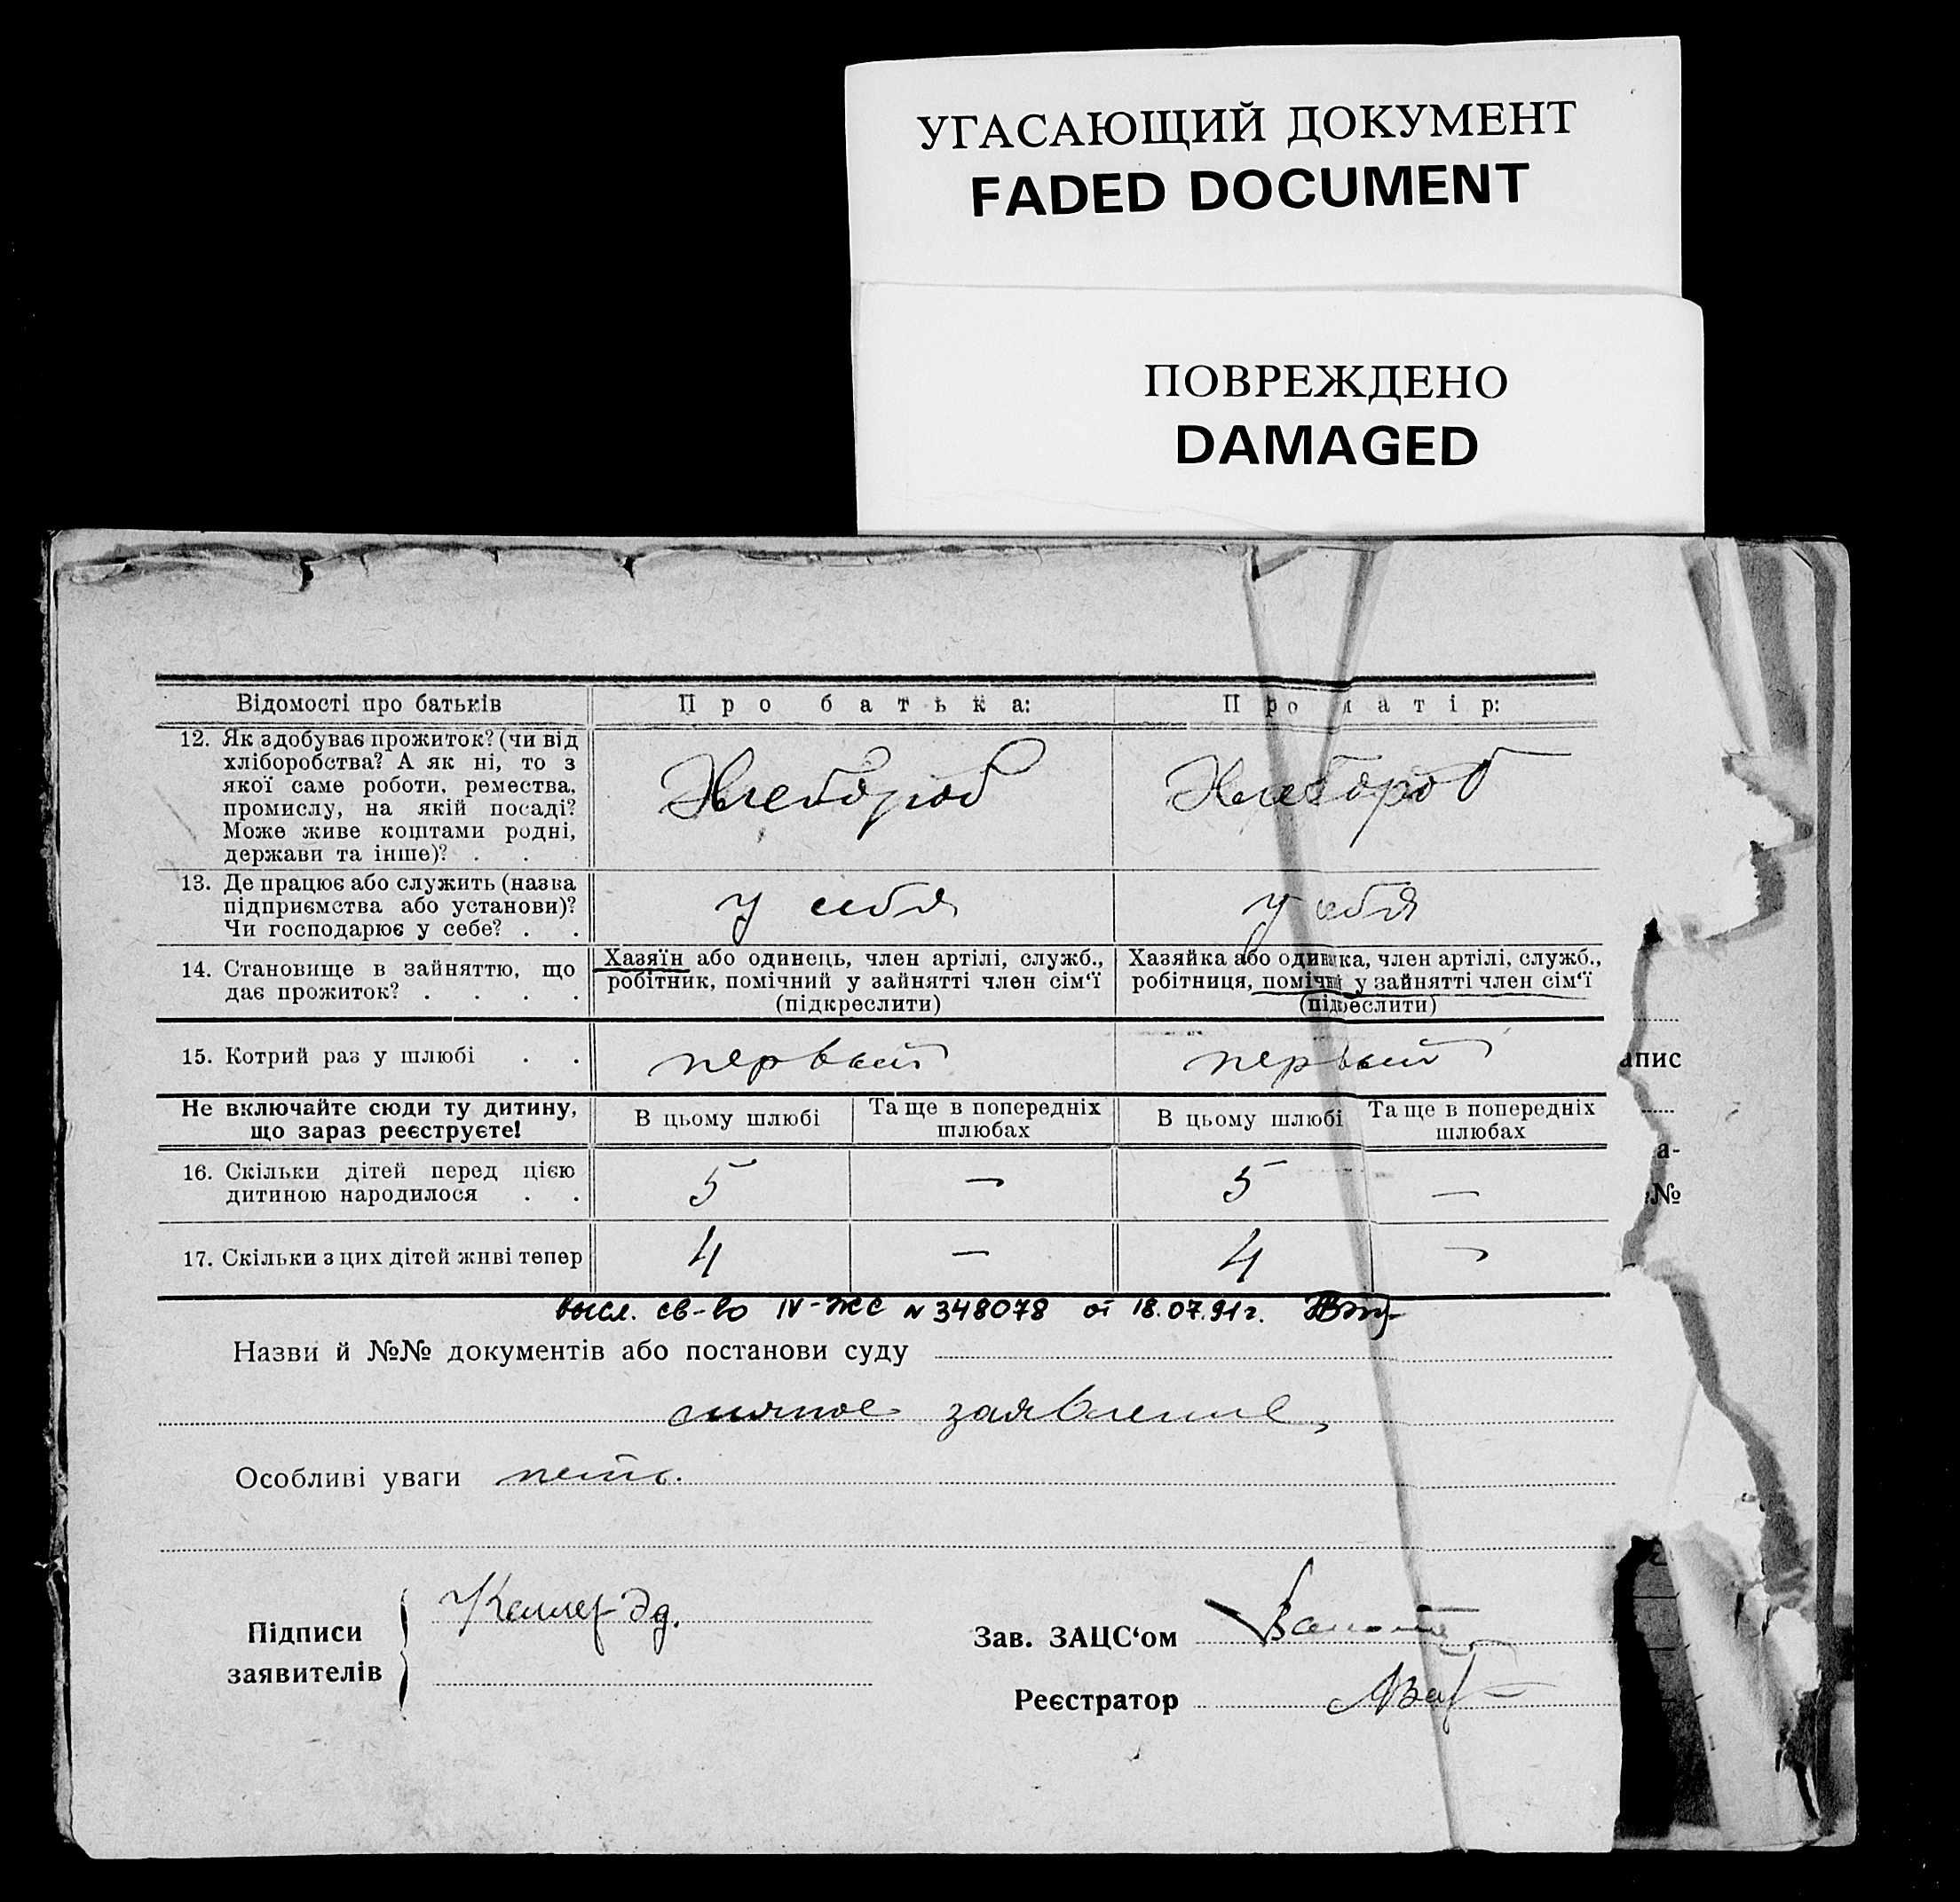 УГАСАЮЩИЙ ДОКУМЕНТ
FADED DOCUMENT
ПОВРЕЖДЕНО
DAMAGED
Відомості про батьків
Про батька:
Про матір:
12. Як здобуває прожиток? (чи від
хліборобства? А як ні, то з
якої саме роботи, ремества,
промислу, на якій посаді?
Може живе коштами родні,
держави та інше)? . .
Хлебороб
Хлебороб
13. Де працює або служить (назва
підприємства або установи)?
Чи господарює у себе? . .
у себя
у себя
14. Становище в зайняттю, що
дає прожиток? . . . .
Хазяїн або одинець, член артілі, служб.,
робітник, помічний у зайнятті член сім‘ї
(підкреслити)
Хазяйка або одиначка, член артілі, служб.,
робітниця, помічні у зайнятті член сім‘ї
(підкреслити)
15. Котрий раз у шлюбі . .
первый
первый
апис
Не включайте сюди ту дитину,
що зараз реєструєте!
В цьому шлюбі
Та ще в попередніх
шлюбах
В цьому шлюбі
Та ще в попередніх
шлюбах
а-
№
16. Скільки дітей перед цією
дитиною народилося . .
5 — 5 —
17. Скільки з цих дітей живі тепер
4 — 4 —
высл. св-во IV-ЖС № 348078 от 18.07.91г.
Назви й №№ документів або постанови суду
заявление,
Особливі уваги нет.
Підписи
заявителів
Келлер Эд.
Зав. ЗАЦС‘ом
Реєстратор